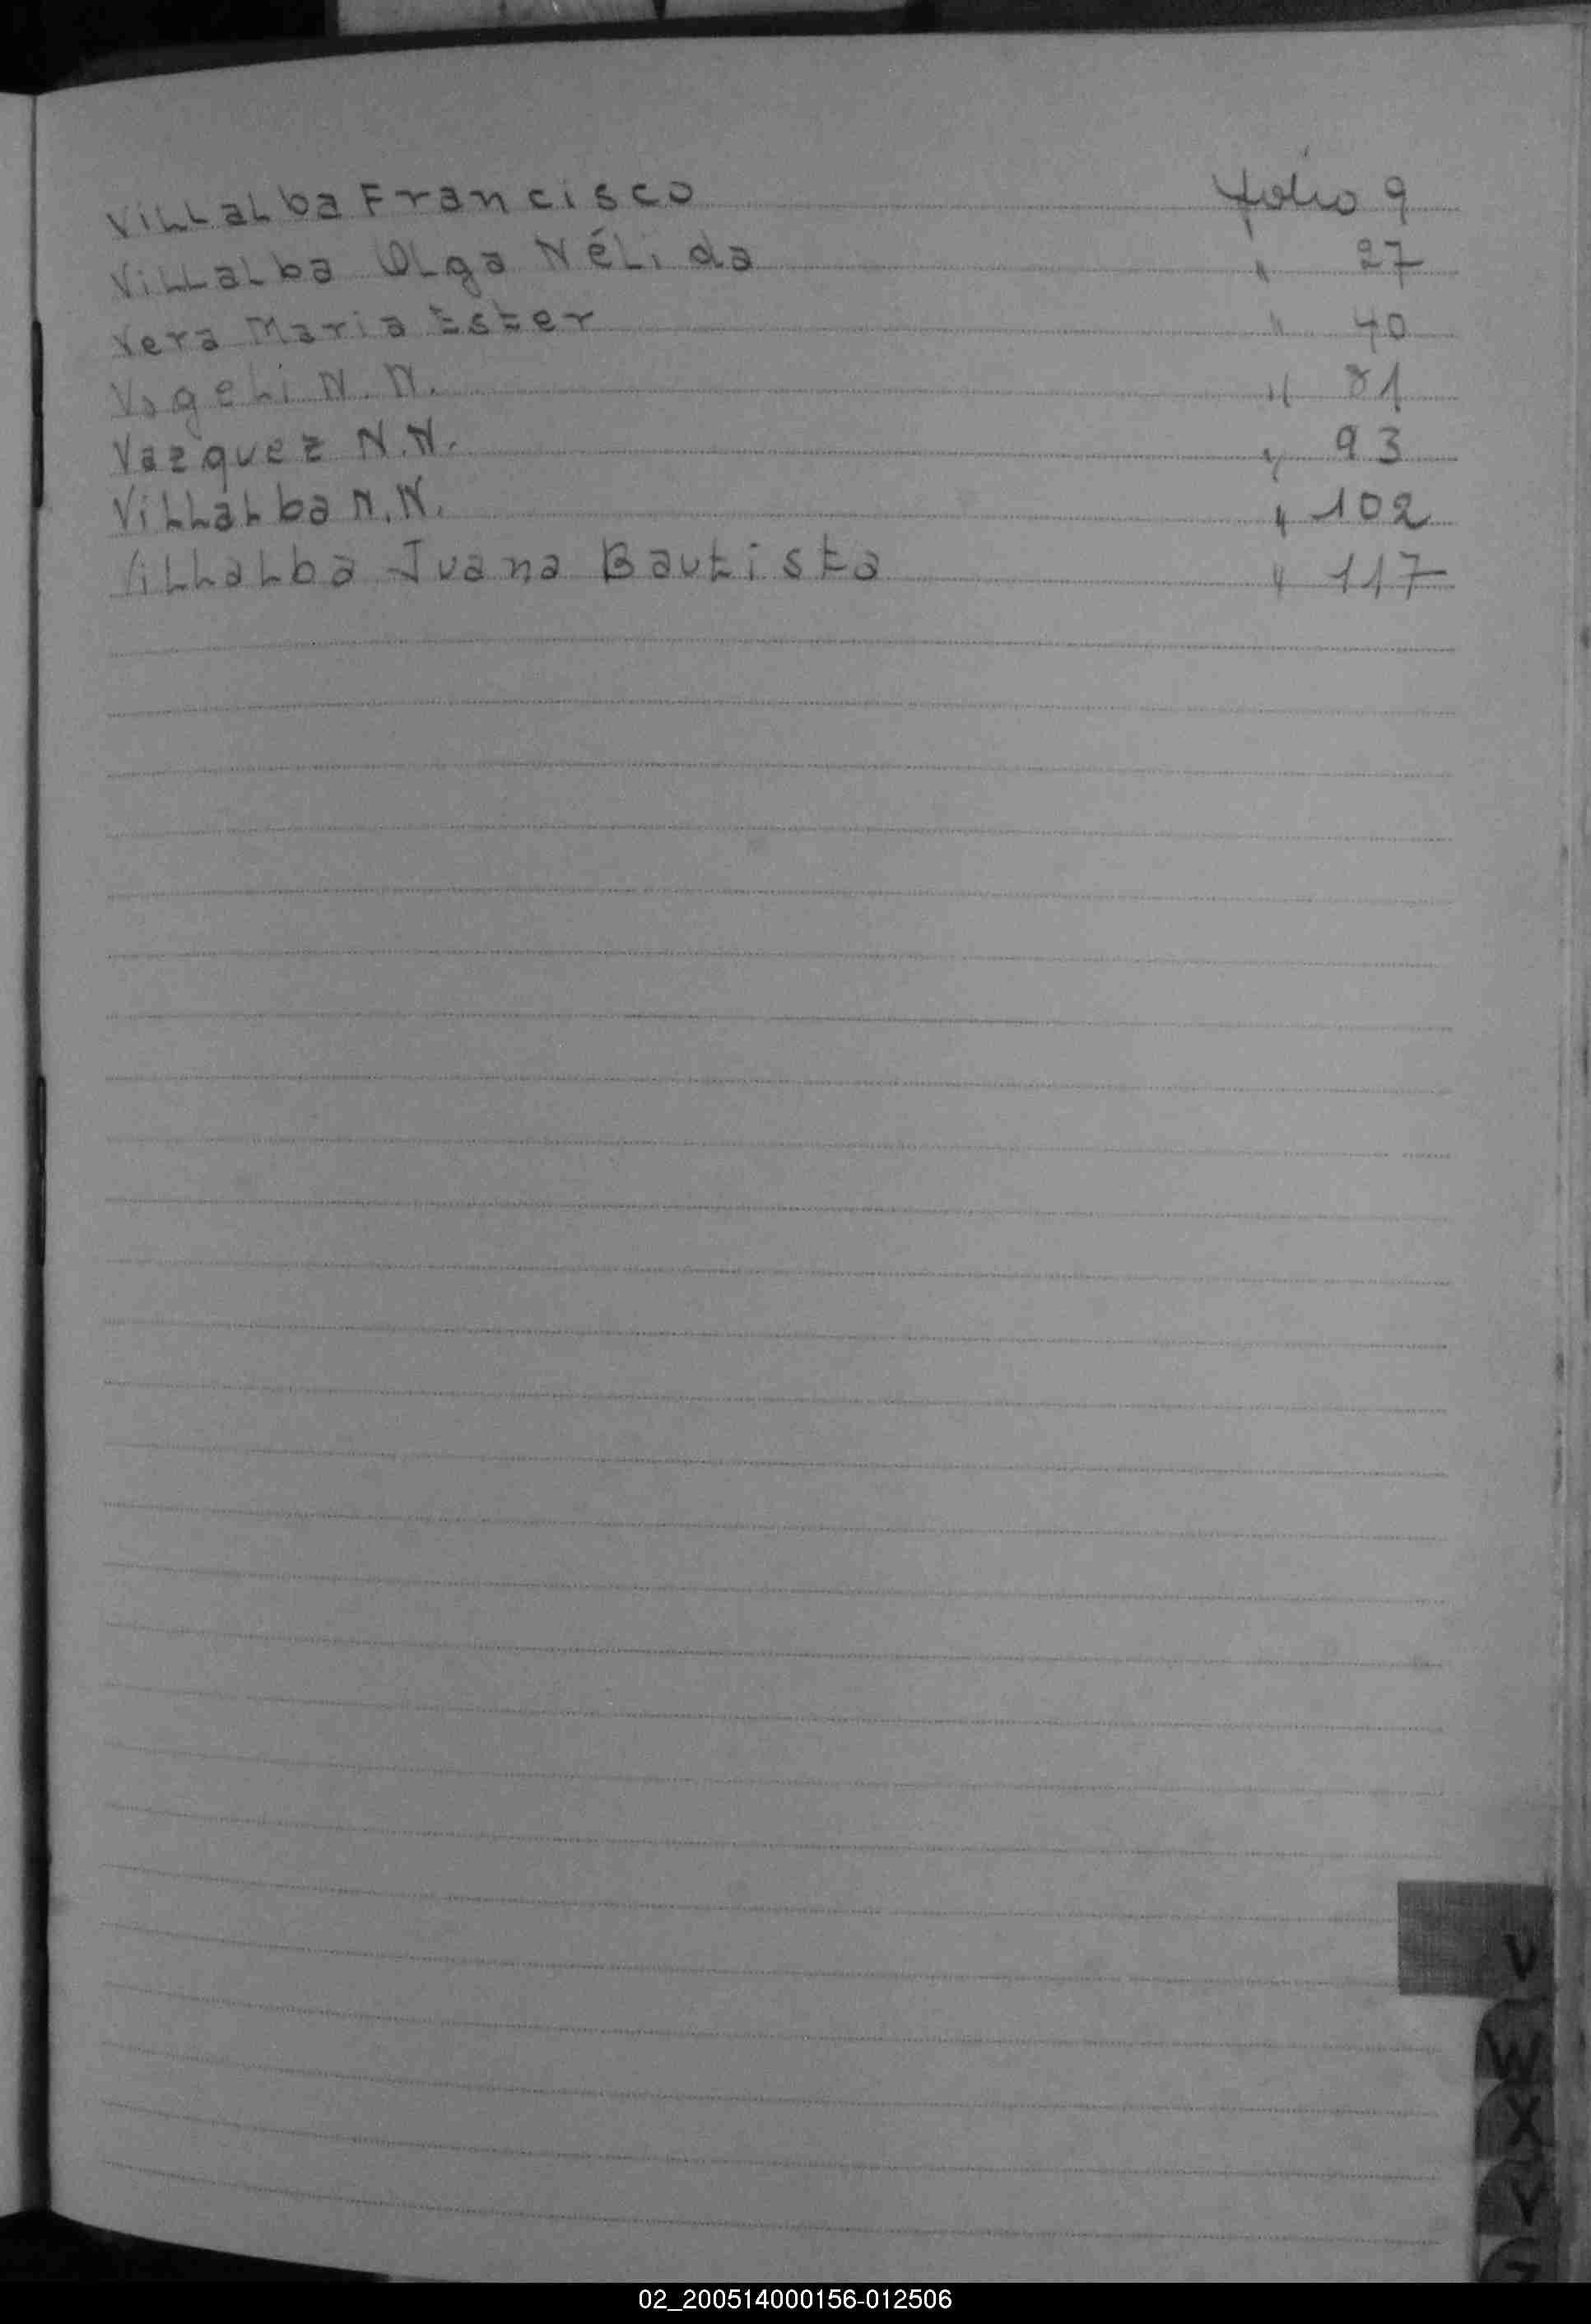 Villalba Francisco folio 9
Villalba Olga Nélida " 27
Vera Maria Ester " 40
Vogeli N. N. " 81
Vazquez N.N. " 93
Villalba N.N. " 102
Villalba Juana Bautista " 117
V
W
X
Y
02_200514000156-012506